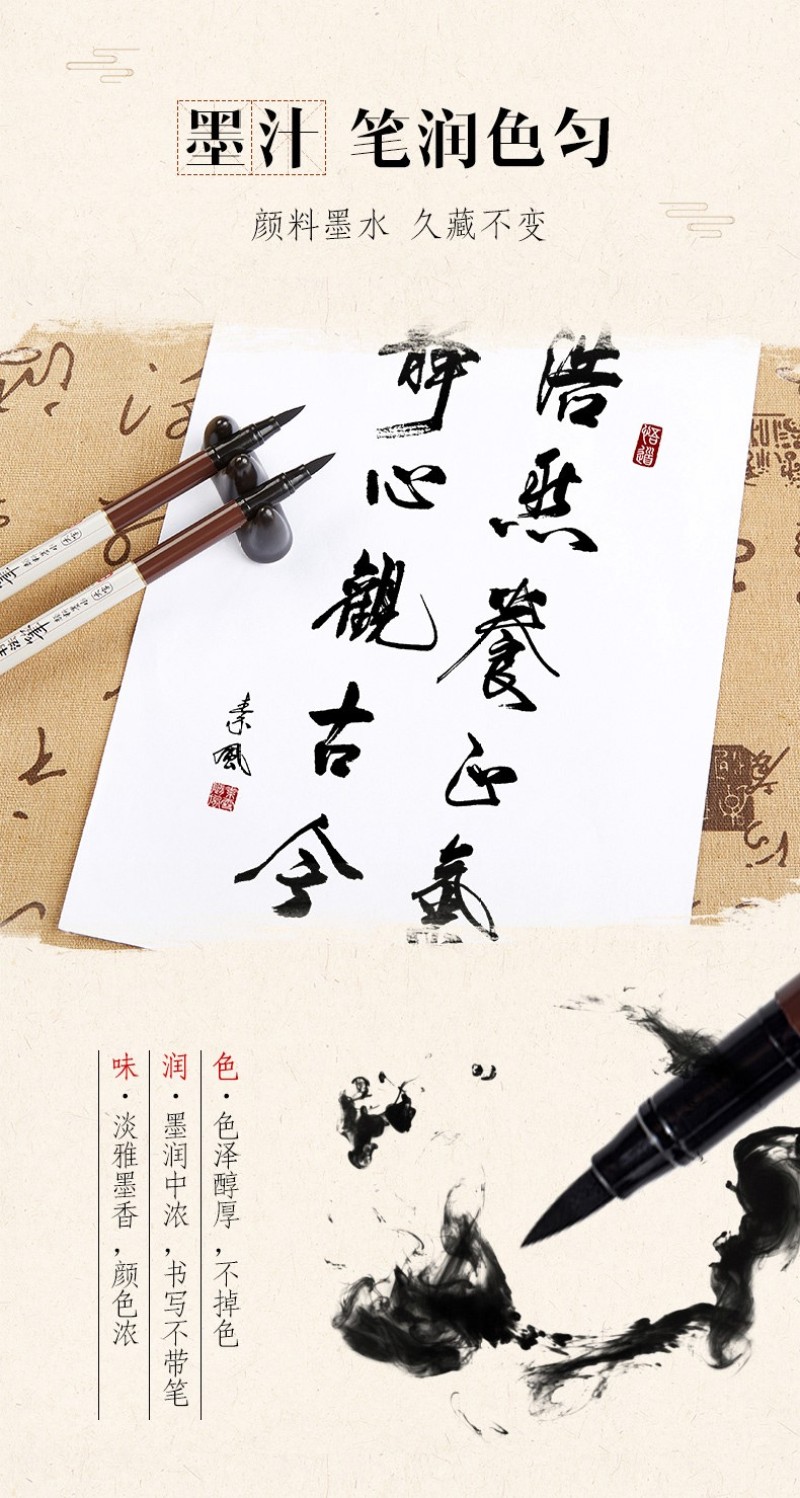 墨汁 笔润色匀
颜料墨水 久藏不变
浩然養正氣
静心觀古今
素風
色·色泽醇厚,不掉色
润·墨润中浓,书写不带笔
味·淡雅墨香,颜色浓